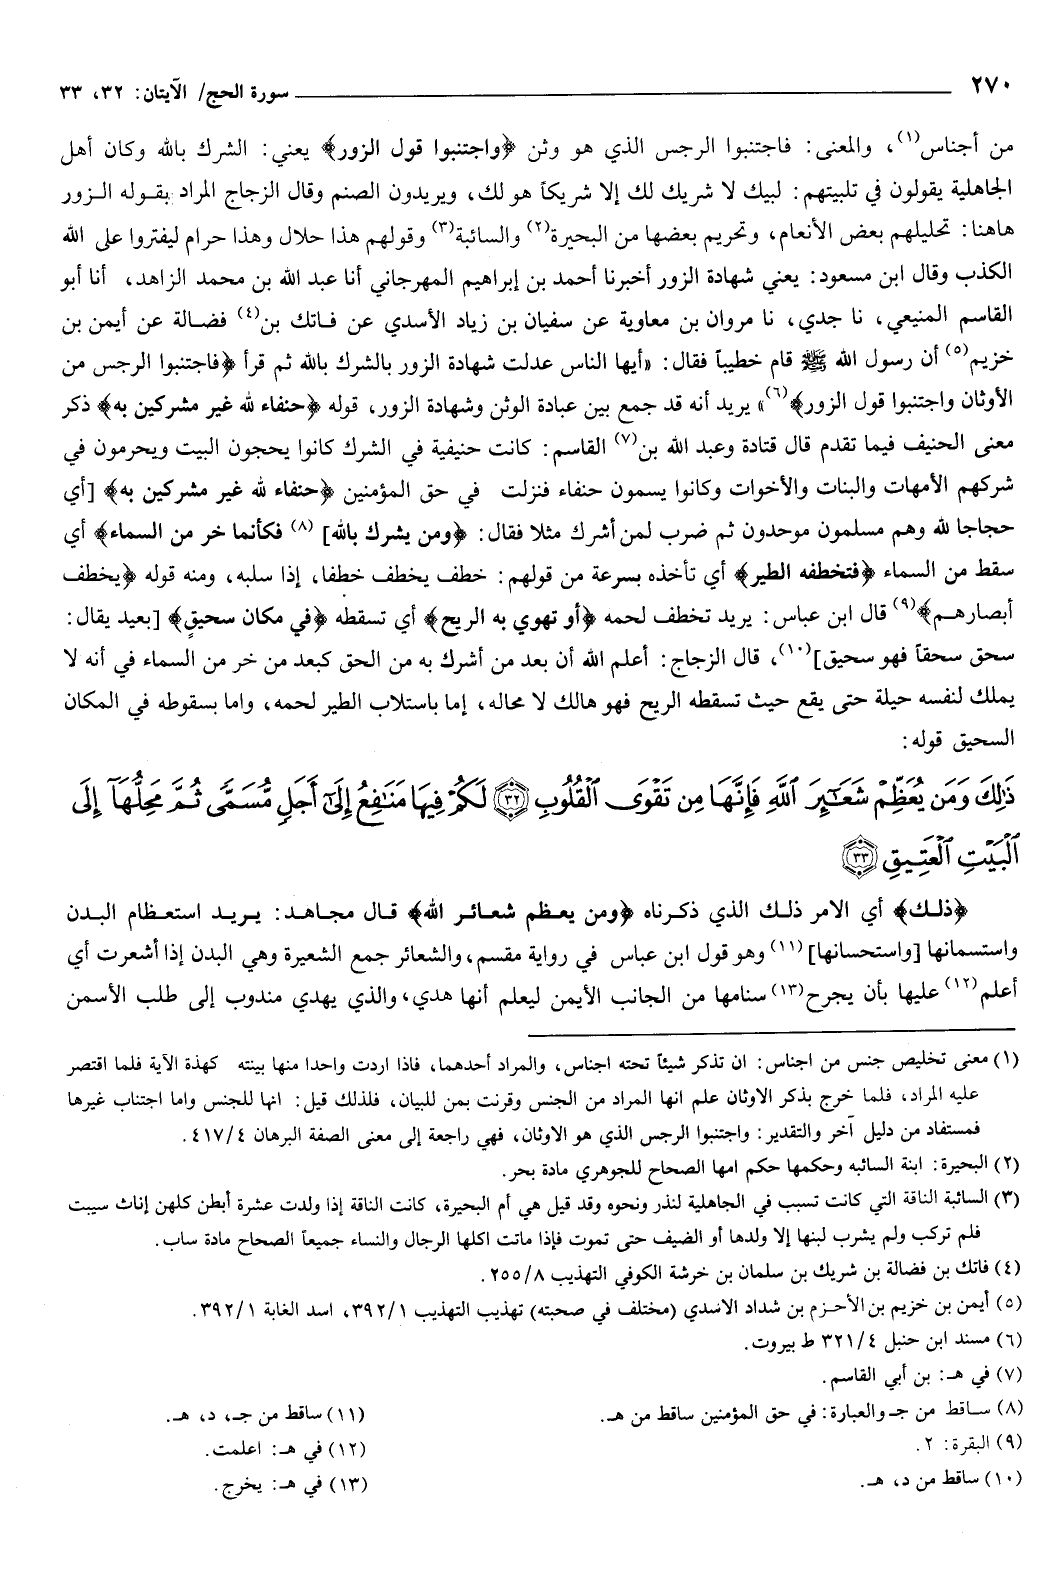 ٢٧٠ سورة الحج/ الآيتان: ٣٢، ٣٣
من أجناس(١)، والمعنى: فاجتنبوا الرجس الذي هو وثن ﴿واجتنبوا قول الزور﴾ يعني: الشرك بالله وكان أهل
الجاهلية يقولون في تلبيتهم: لبيك لا شريك لك إلا شريكاً هو لك، ويريدون الصنم وقال الزجاج المراد بقوله الزور
هاهنا: تحليلهم بعض الأنعام، وتحريم بعضها من البحيرة(٢) والسائبة(٣) وقولهم هذا حلال وهذا حرام ليفتروا على الله
الكذب وقال ابن مسعود: يعني شهادة الزور أخبرنا أحمد بن إبراهيم المهرجاني أنا عبد الله بن محمد الزاهد، أنا أبو
القاسم المنيعي، نا جدي، نا مروان بن معاوية عن سفيان بن زياد الأسدي عن فاتك بن(٤) فضالة عن أيمن بن
خزيم(٥) أن رسول الله ﷺ قام خطيباً فقال: «أيها الناس عدلت شهادة الزور بالشرك بالله ثم قرأ ﴿فاجتنبوا الرجس من
الأوثان واجتنبوا قول الزور﴾(٦)» يريد أنه قد جمع بين عبادة الوثن وشهادة الزور، قوله ﴿حنفاء لله غير مشركين به﴾ ذكر
معنى الحنيف فيما تقدم قال قتادة وعبد الله بن(٧) القاسم: كانت حنيفية في الشرك كانوا يحجون البيت ويحرمون في
شركهم الأمهات والبنات والأخوات وكانوا يسمون حنفاء فنزلت في حق المؤمنين ﴿حنفاء لله غير مشركين به﴾ [أي
حجاجا لله وهم مسلمون موحدون ثم ضرب لمن أشرك مثلا فقال: ﴿ومن يشرك بالله] (٨) فكأنما خر من السماء﴾ أي
سقط من السماء ﴿فتخطفه الطير﴾ أي تأخذه بسرعة من قولهم: خطف يخطف خطفا، إذا سلبه، ومنه قوله ﴿يخطف
أبصارهم﴾(٩) قال ابن عباس: يريد تخطف لحمه ﴿أو تهوي به الريح﴾ أي تسقطه ﴿في مكان سحيق﴾ [بعيد يقال:
سحق سحقاً فهو سحيق](١٠)، قال الزجاج: أعلم الله أن بعد من أشرك به من الحق كبعد من خر من السماء في أنه لا
يملك لنفسه حيلة حتى يقع حيث تسقطه الريح فهو هالك لا محاله، إما باستلاب الطير لحمه، واما بسقوطه في المكان
السحيق قوله:
ذَٰلِكَ وَمَن يُعَظِّمْ شَعَٰٓئِرَ ٱللَّهِ فَإِنَّهَا مِن تَقْوَى ٱلْقُلُوبِ ٣٢ لَكُمْ فِيهَا مَنَٰفِعُ إِلَىٰٓ أَجَلٍ مُّسَمًّى ثُمَّ مَحِلُّهَآ إِلَى
ٱلْبَيْتِ ٱلْعَتِيقِ ٣٣
﴿ذلك﴾ أي الامر ذلك الذي ذكرناه ﴿ومن يعظم شعائر الله﴾ قال مجاهد: يريد استعظام البدن
واستسمانها [واستحسانها] (١١) وهو قول ابن عباس في رواية مقسم، والشعائر جمع الشعيرة وهي البدن إذا أشعرت أي
أعلم(١٢) عليها بأن يجرح(١٣) سنامها من الجانب الأيمن ليعلم أنها هدي، والذي يهدي مندوب إلى طلب الأسمن
(١) معنى تخليص جنس من اجناس: ان تذكر شيئاً تحته اجناس، والمراد أحدهما، فاذا اردت واحدا منها بينته كهذة الآية فلما اقتصر
عليه المراد، فلما خرج بذكر الاوثان علم انها المراد من الجنس وقرنت بمن للبيان، فلذلك قيل: انها للجنس واما اجتناب غيرها
فمستفاد من دليل آخر والتقدير: واجتنبوا الرجس الذي هو الاوثان، فهي راجعة إلى معنى الصفة البرهان ٤١٧/٤.
(٢) البحيرة: ابنة السائبه وحكمها حكم امها الصحاح للجوهري مادة بحر.
(٣) السائبة الناقة التي كانت تسبب في الجاهلية لنذر ونحوه وقد قيل هي أم البحيرة، كانت الناقة إذا ولدت عشرة أبطن كلهن إناث سيبت
فلم تركب ولم يشرب لبنها إلا ولدها أو الضيف حتى تموت فإذا ماتت اكلها الرجال والنساء جميعاً الصحاح مادة ساب.
(٤) فاتك بن فضالة بن شريك بن سلمان بن خرشة الكوفي التهذيب ٢٥٥/٨.
(٥) أيمن بن خزيم بن الأحزم بن شداد الاسدي (مختلف في صحبته) تهذيب التهذيب ٣٩٢/١، اسد الغابة ٣٩٢/١.
(٦) مسند ابن حنبل ٣٢١/٤ ط بيروت.
(٧) في هـ: بن أبي القاسم.
(٨) ساقط من جـ والعبارة: في حق المؤمنين ساقط من هـ.
(٩) البقرة: ٢.
(١٠) ساقط من د، هـ.
(١١) ساقط من جـ، د، هـ.
(١٢) في هـ: اعلمت.
(١٣) في هـ: يخرج.